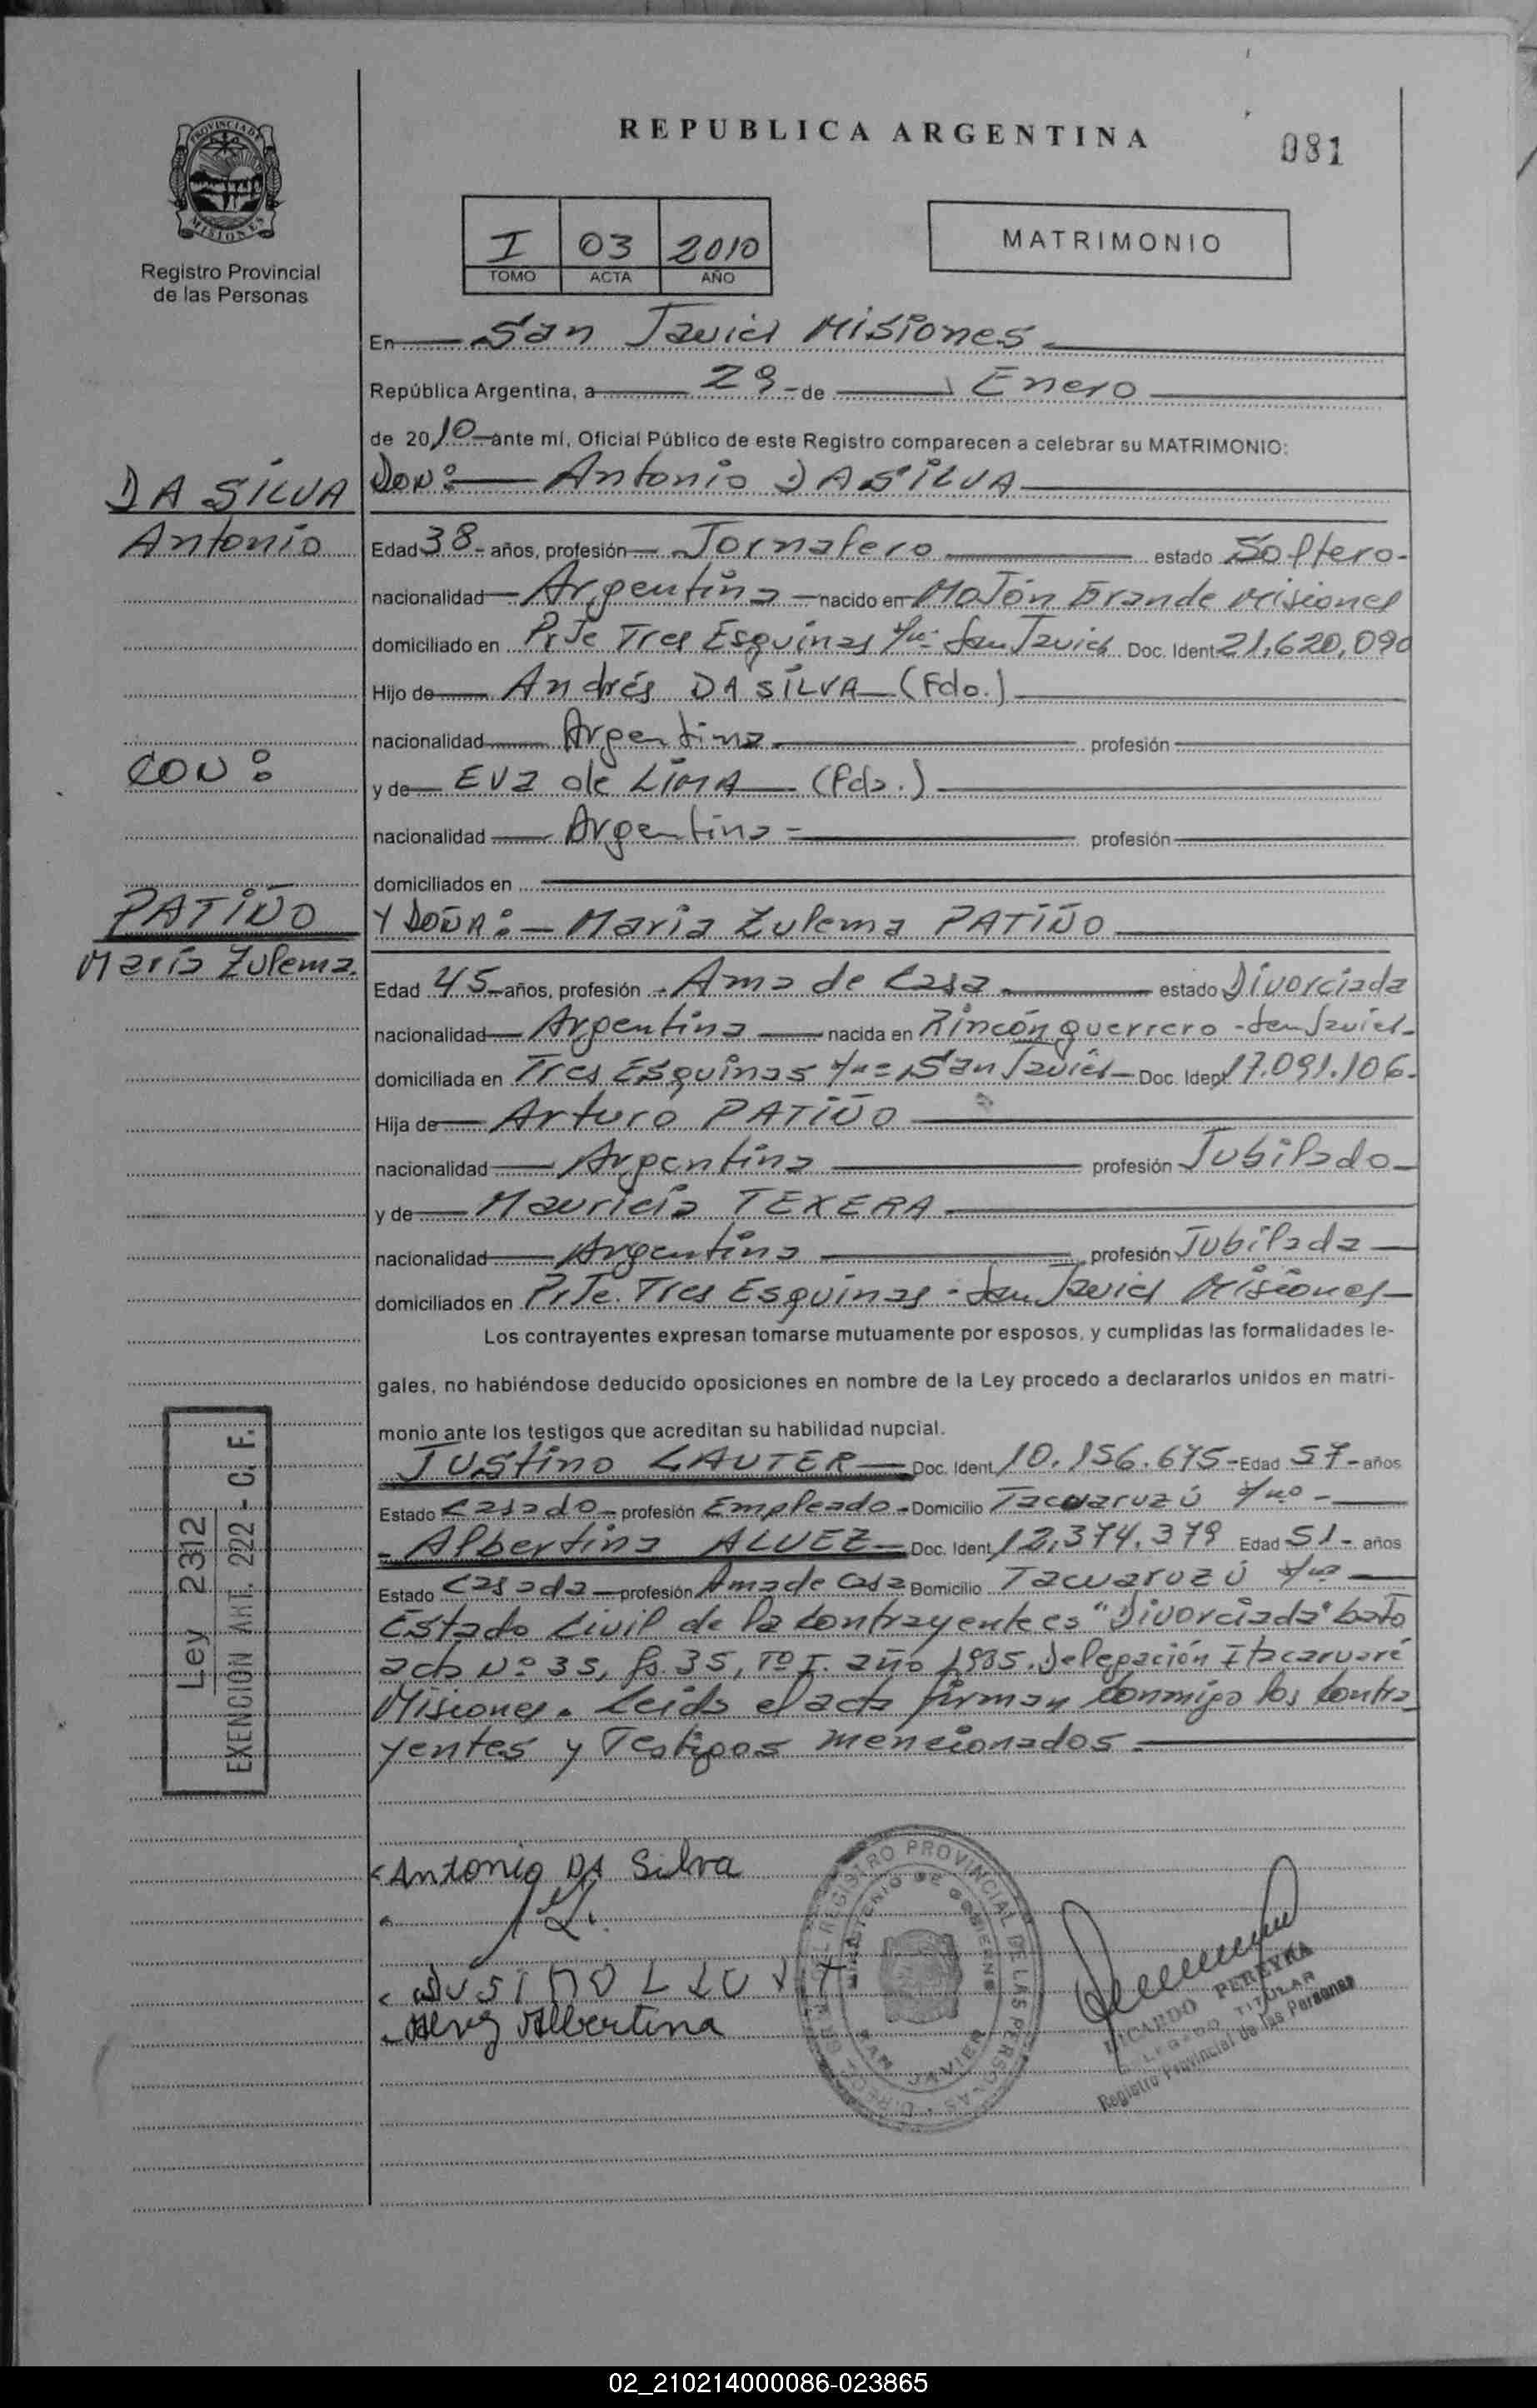 REPUBLICA ARGENTINA
081
PROVINCIA DE
MISIONES
Registro Provincial
de las Personas
I 03 2010
TOMO ACTA AÑO
MATRIMONIO
En San Javier Misiones
República Argentina, a 29 - de Enero
de 2010 ante mí, Oficial Público de este Registro comparecen a celebrar su MATRIMONIO:
DA SILVA
Antonio
DON: Antonio DA SILVA
Edad 38 - años, profesión Jornalero estado Soltero -
nacionalidad Argentina nacido en Mojón Grande Misiones
domiciliado en Pje Tres Esquinas San Javier Doc. Ident 21.620.090
Hijo de Andrés DA SILVA (Fdo.)
nacionalidad Argentina profesión
CON:
y de Eva de LIMA (Fda.)
nacionalidad Argentina profesión
domiciliados en
PATIÑO
María Zulema.
Y DOÑA: - Maria Zulema PATIÑO
Edad 45 - años, profesión Ama de Casa estado Divorciada
nacionalidad Argentina nacida en Rincón guerrero - San Javier -
domiciliada en Tres Esquinas San Javier - Doc. Ident 17.091.106.
Hija de Arturo PATIÑO
nacionalidad Argentina profesión Jubilado
y de Mauricia TEXERA
nacionalidad Argentina profesión Jubilada
domiciliados en Pje. Tres Esquinas - San Javier Misiones
Los contrayentes expresan tomarse mutuamente por esposos, y cumplidas las formalidades le-
gales, no habiéndose deducido oposiciones en nombre de la Ley procedo a declararlos unidos en matri-
monio ante los testigos que acreditan su habilidad nupcial.
Justino LAUTER Doc. Ident 10.156.675 - Edad 57 - años
Estado Casado - profesión Empleado - Domicilio Tacuaruzú
- Albertina ALVEZ Doc. Ident 12.374.379 Edad 51 - años
Estado Casada - profesión Ama de Casa Domicilio Tacuaruzú
Estado Civil de la Contrayente es "Divorciada" bajo
acta Nº 35, fs. 35, Tº I. año 1985. Delegación Itacaruaré
Misiones. Leida el acta firman conmigo los Contra
yentes y Testigos mencionados.
Ley 2312
EXENCION ART. 222 - C. F.
Antonio DA Silva
Albertina
REGISTRO PROVINCIAL DE LAS PERSONAS
MINISTERIO DE GOBIERNO
SAN JAVIER
RICARDO PEREYRA
DELEGADO TITULAR
Registro Provincial de las Personas
02_210214000086-023865